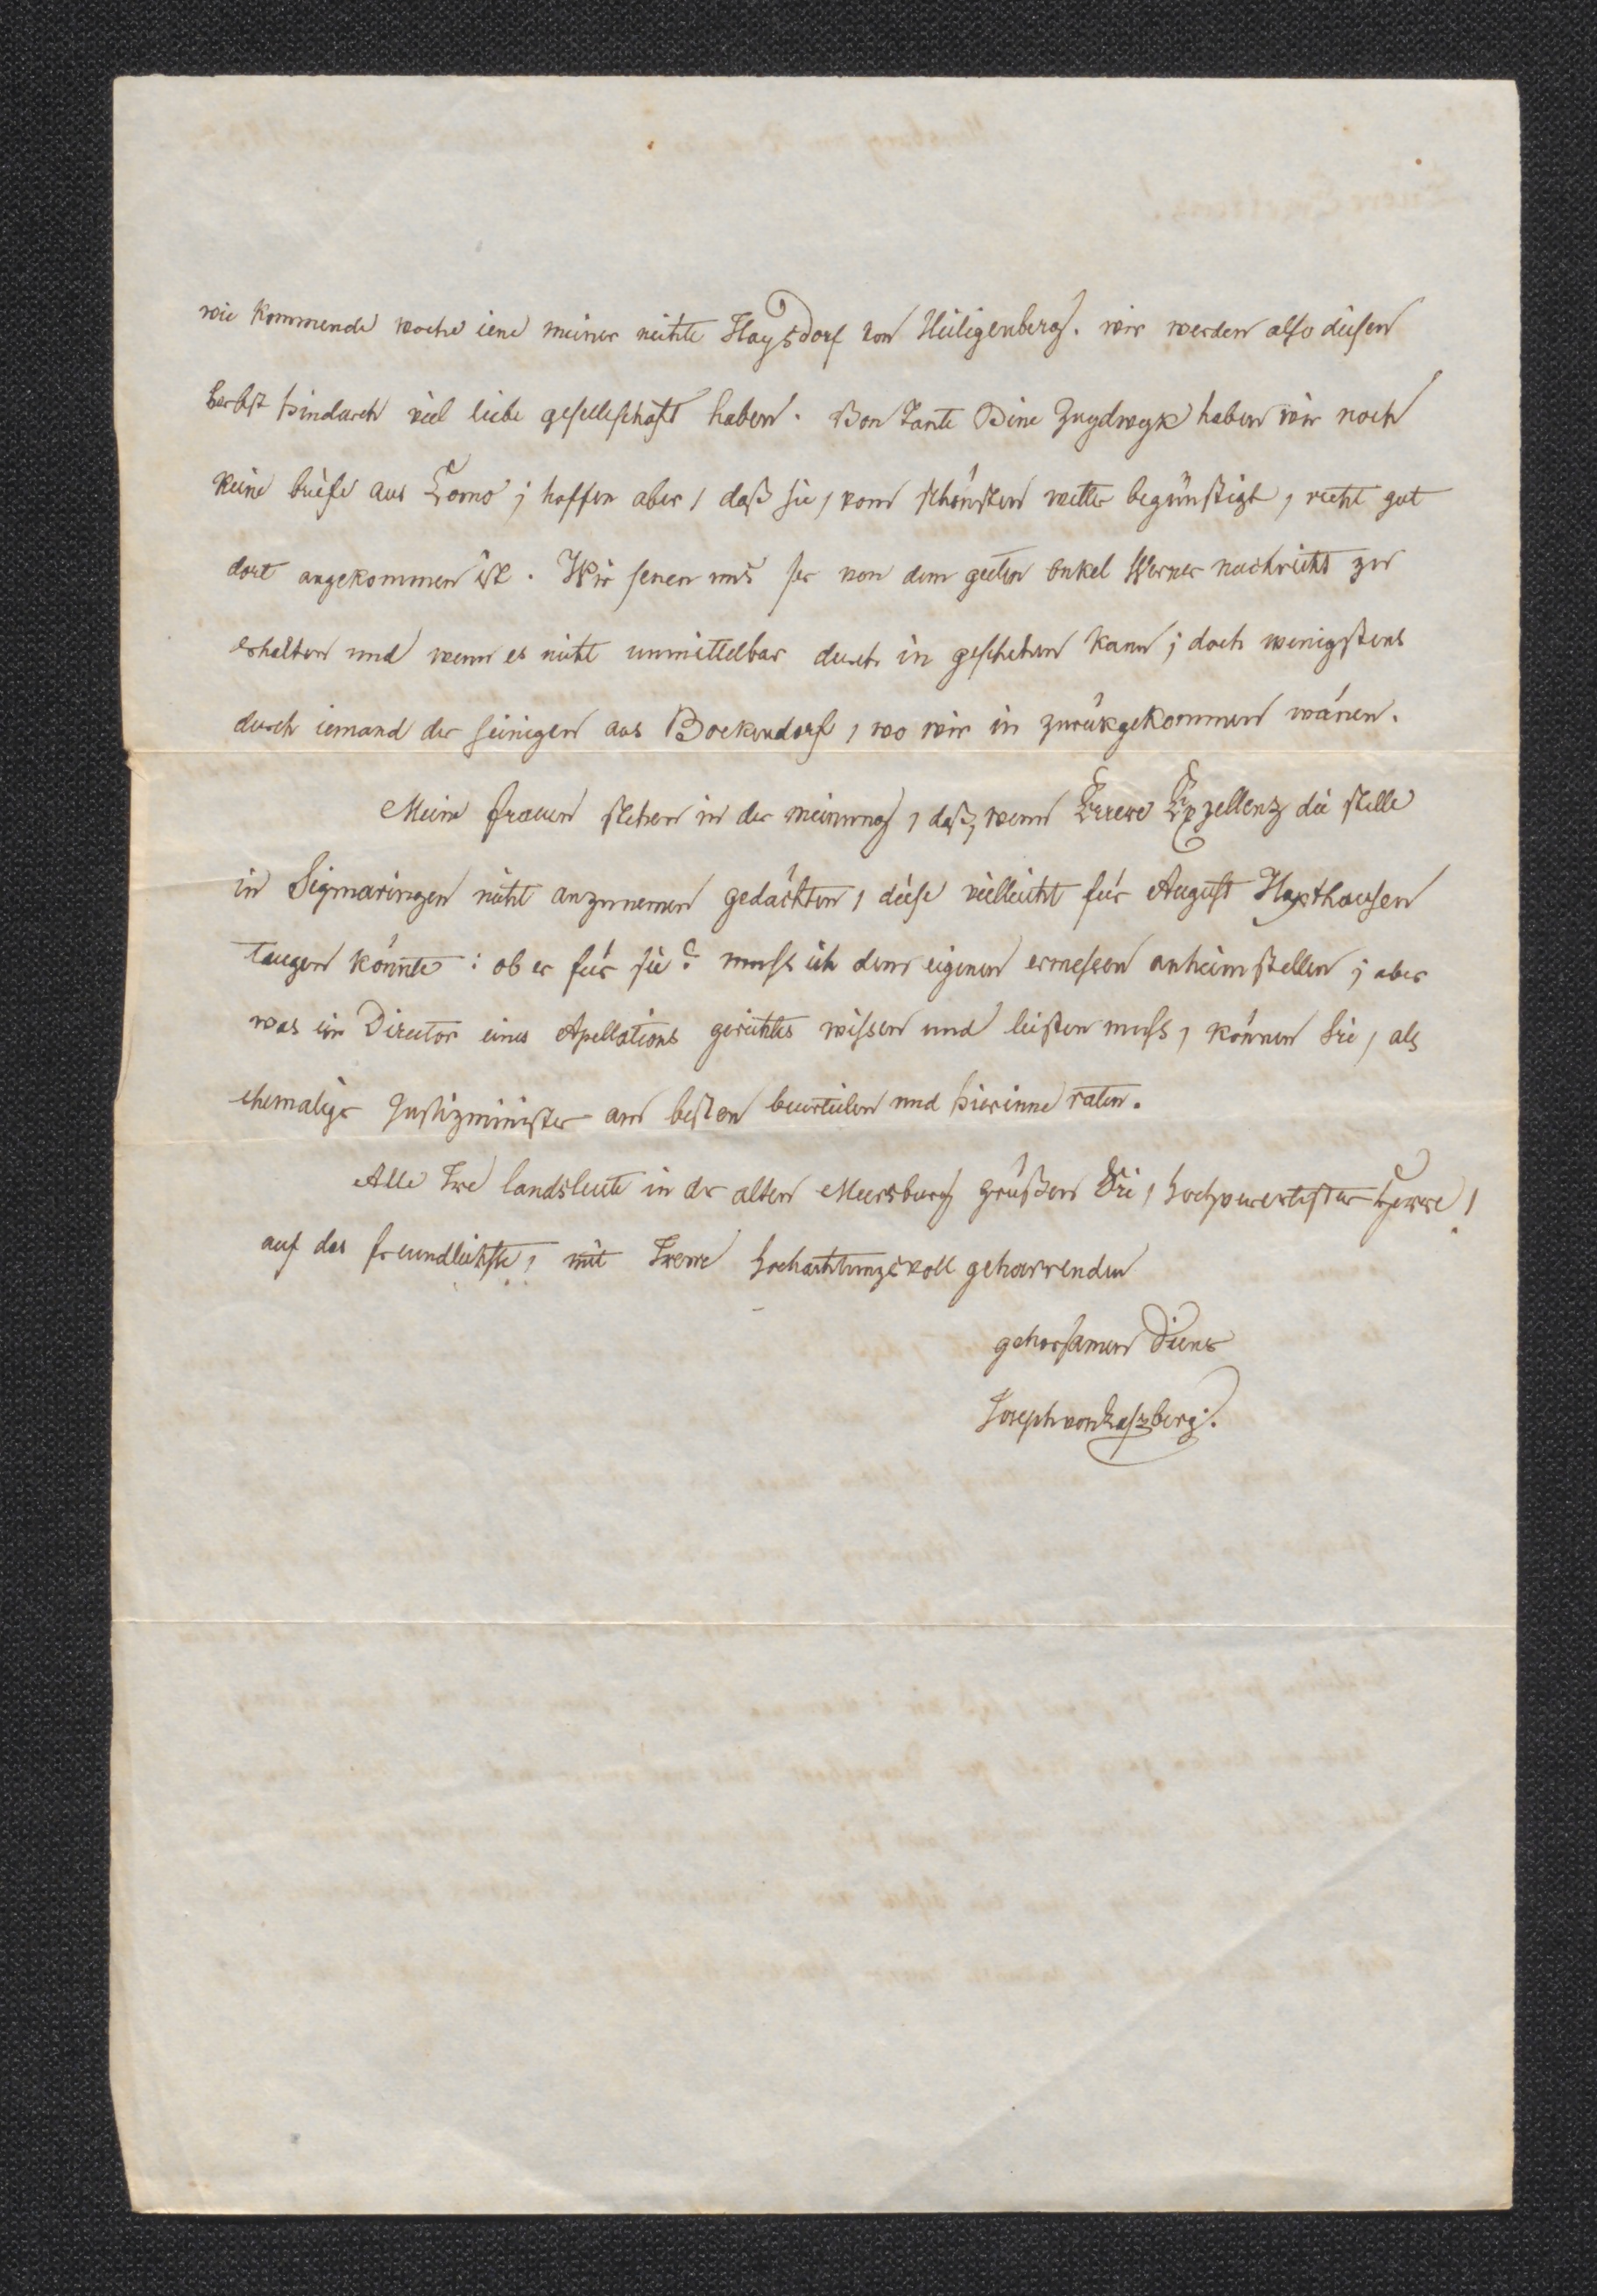 wie kommende woche iene meiner nichte Haysdorf von Heiligenberg. wir werden also diesen
herbst hindurch viel liebe gesellschaft haben. Von Tante Dine Zuydwyk haben wir noch
keine briefe aus Como; hoffen aber, daß sie, vom schönsten wetter begünstigt, recht gut
dort angekommen ist. Wir senen uns ser von dem guten onkel Werner nachricht zu
erhalten und wenn es nicht unmittelbar durch in geschehen kann; doch wenigstens
durch iemand der seinigen aus Boekendorf, wo wir in zurükgekommen wänen.
Meine frauen stehen in der meinung, daß, wenn Euere Exzellenz die stelle
in Sigmaringen nicht anzunemen gedächten, diese vielleicht für August Haxthausen
taugen könnte: ob er für sie? muss ich dem eigenen ermessen anheimstellen; aber
was ein Director eines Apellations gerichtes wissen und leisten muss, können Sie, als
ehemaliger Justizminister am besten beurteilen und hierinne raten.
Alle Ire landsleute in der alten Meersburg grüßen Sie, hochverertester Herre!
auf das freundlichste, mit Irem hochachtungsvoll geharrenden
gehorsamen Diener
Joseph von Laszberg.